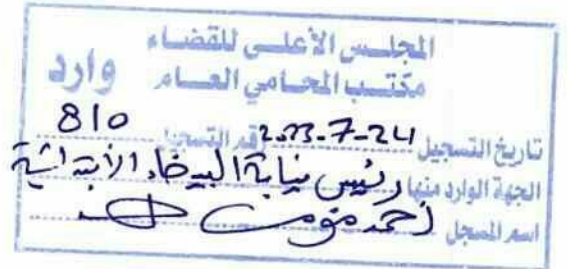 المجلس الأعلى للقضاء
مكتب المحامي العام
وارد
تاريخ التسجيل 2023-7-24 رقم التسجيل 810
الجهة الوارد منها رئيس نيابة البيضاء الابتدائية
اسم المسجل أحمد